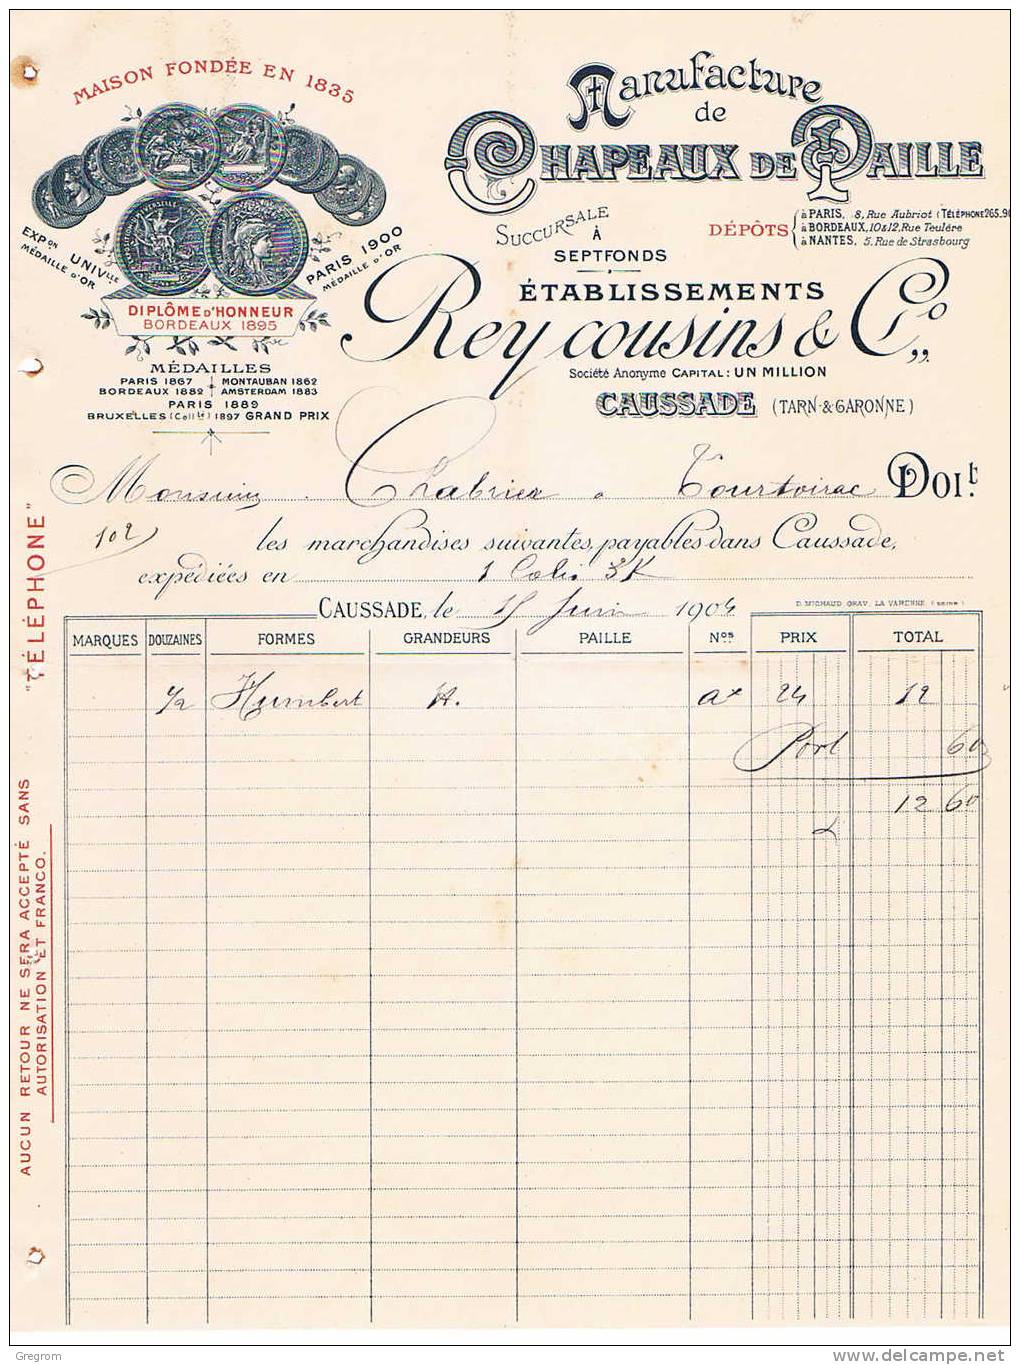 MAISON FONDÉE EN 1835
EXPon UNIVlle PARIS 1900
MÉDAILLE D'OR MÉDAILLE D'OR
DIPLÔME D'HONNEUR
BORDEAUX 1895
MÉDAILLES
PARIS 1867 MONTAUBAN 1862
BORDEAUX 1882 AMSTERDAM 1883
PARIS 1889
BRUXELLES (Collte) 1897 GRAND PRIX
Manufacture
de
CHAPEAUX DE PAILLE
SUCCURSALE
À
SEPTFONDS
DÉPÔTS
à PARIS, 8, Rue Aubriot (TÉLÉPHONE 265.90
à BORDEAUX, 10 & 12, Rue Teulère
à NANTES, 5, Rue de Strasbourg
ÉTABLISSEMENTS
Rey cousins & Co
Société Anonyme CAPITAL: UN MILLION
CAUSSADE (TARN-&-GARONNE)
Monsieur Chabrier a Tourtoirac DOIt.
102
les marchandises suivantes, payables dans Caussade,
expédiées en 1 Colis 3K
CAUSSADE, le 15 Juin 1904
D. MICHAUD GRAV. LA VARENNE (SEINE)
MARQUES DOUZAINES FORMES GRANDEURS PAILLE Nos PRIX TOTAL
1/2 Humbert H. ax 24 12
Port 60
12 60
"TÉLÉPHONE"
AUCUN RETOUR NE SERA ACCEPTÉ SANS
AUTORISATION ET FRANCO.
Gregrom
www.delcampe.net